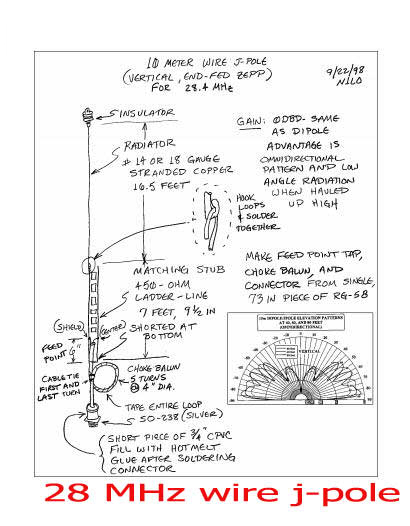 10 METER WIRE J-POLE
(VERTICAL, END-FED ZEPP)
FOR 28.4 MHz
9/22/98
N1LO
INSULATOR
RADIATOR
# 14 OR 18 GAUGE
STRANDED COPPER
16.5 FEET
GAIN: 0DBD- SAME
AS DIPOLE
ADVANTAGE IS
OMNIDIRECTIONAL
PATTERN AND LOW
ANGLE RADIATION
WHEN HAULED
UP HIGH
HOOK
LOOPS
& SOLDER
TOGETHER
MATCHING STUB
450-OHM
LADDER-LINE
7 FEET, 9 1/2 IN
SHORTED AT
BOTTOM
MAKE FEED POINT TAP,
CHOKE BALUN, AND
CONNECTOR FROM SINGLE,
73 IN PIECE OF RG-58
(SHIELD)
(CENTER)
FEED
POINT 6"
CABLE TIE
FIRST AND
LAST TURN
CHOKE BALUN
5 TURNS
@ 4" DIA.
TAPE ENTIRE LOOP
SO-238 (SILVER)
SHORT PIECE OF 3/4" CPVC
FILL WITH HOTMELT
GLUE AFTER SOLDERING
CONNECTOR
10m DIPOLE/POLE ELEVATION PATTERNS
(OMNIDIRECTIONAL)
VERTICAL
28 MHz wire j-pole